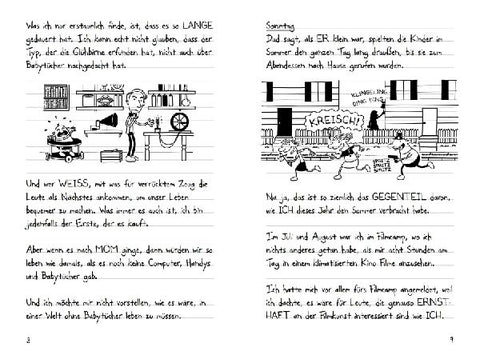 Was ich nur erstaunlich finde, ist, dass es so LANGE
gedauert hat. Ich kann echt nicht glauben, dass der
Typ, der die Glühbirne erfunden hat, nicht auch über
Babytücher nachgedacht hat.
Und wer WEISS, mit was für verrücktem Zeug die
Leute als Nächstes ankommen, um unser Leben
bequemer zu machen. Was immer es auch ist, ich bin
jedenfalls der Erste, der es kauft.
Aber wenn es nach MOM ginge, dann würden wir so
leben wie damals, als es noch keine Computer, Handys
und Babytücher gab.
Und ich möchte mir nicht vorstellen, wie es wäre, in
einer Welt ohne Babytücher leben zu müssen.
8
Sonntag
Dad sagt, als ER klein war, spielten die Kinder im
Sommer den ganzen Tag lang draußen, bis sie zum
Abendessen nach Hause gerufen wurden.
KLINGELING
DING DONG
KREISCH!
SPRITZ
SPRITZ
Na ja, das ist so ziemlich das GEGENTEIL davon,
wie ICH dieses Jahr den Sommer verbracht habe.
Im Juli und August war ich im Filmcamp, wo ich
nichts anderes getan habe, als mir acht Stunden am
Tag in einem klimatisierten Kino Filme anzusehen.
Ich hatte mich vor allem fürs Filmcamp angemeldet, weil
ich dachte, es wäre für Leute, die genauso ERNST-
HAFT an der Filmkunst interessiert sind wie ICH.
9